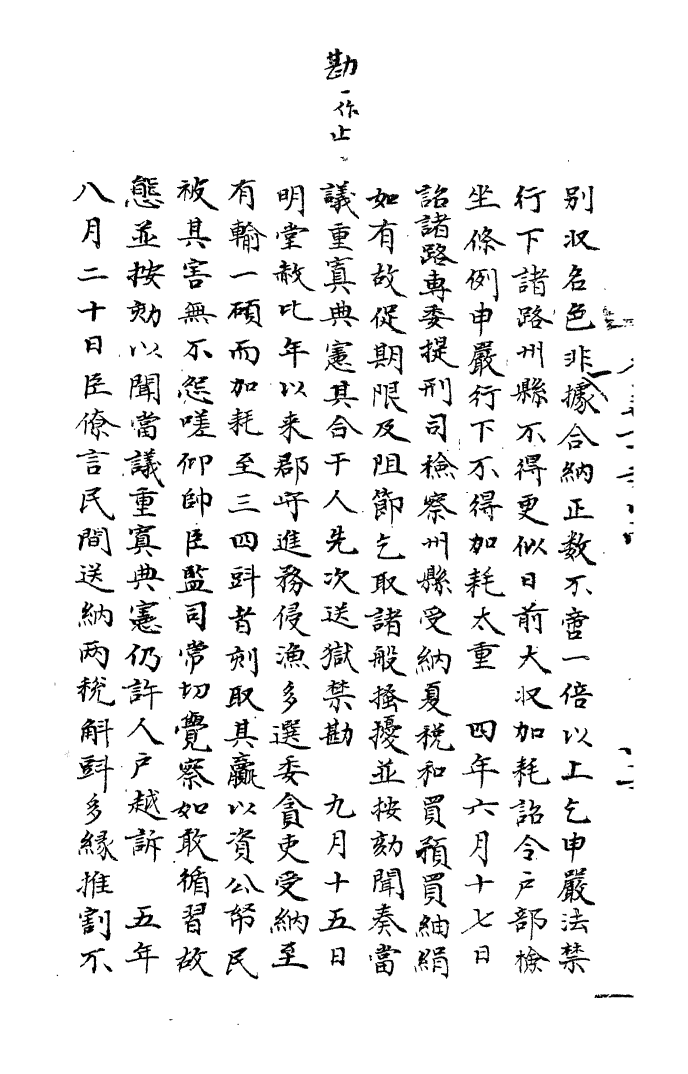 勘一作止
別収名色非據合納正数不啻一倍以上乞申嚴法禁
行下諸路州縣不得更似日前大収加耗詔令户部檢
坐條例申嚴行下不得加耗太重　四年六月十七日
詔諸路專委提刑司檢察州縣受納夏税和買預買紬絹
如有故促期限及阻節乞取諸般搔擾並按劾聞奏當
議重寘典憲其合干人先次送獄禁勘　九月十五日
明堂赦比年以来郡守進務侵漁多選委貪吏受納至
有輸一碩而加耗至三四㪷者刻取其贏以資公帑民
被其害無不怨嗟仰帥臣監司常切覺察如敢循習故
態並按劾以聞當議重寘典憲仍許人户越訴　五年
八月二十日臣僚言民間送納两税斛㪷多縁推割不